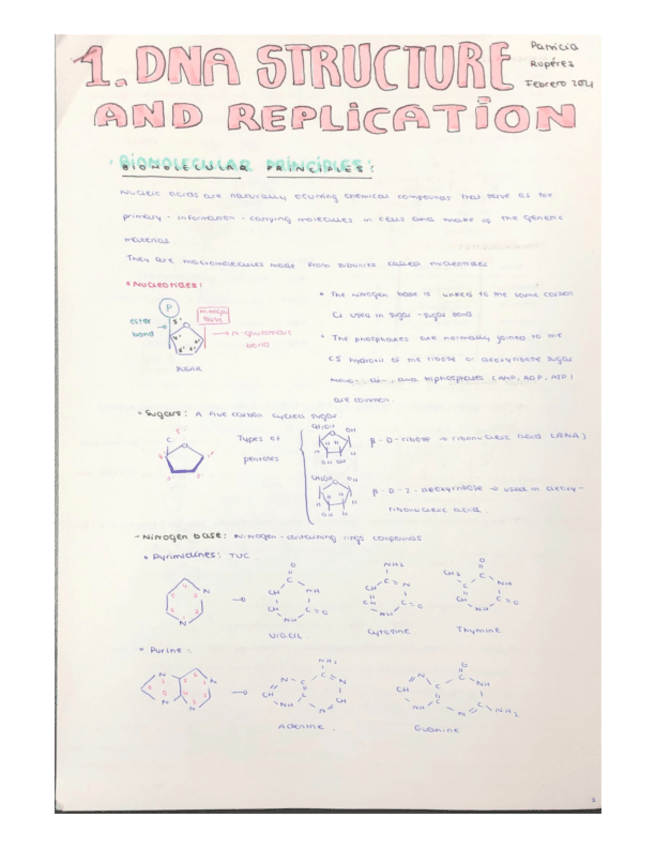 1. DNA STRUCTURE
Patricia
Rupérez
Febrero 2021
AND REPLICATION
BIOMOLECULAR PRINCIPLES:
Nucleic acids are naturally ocurring chemical compounds that serve as the
primary - information - carrying molecules in cells and make up the genetic
material.
They are macromolecules made from subunits called nucleotides
• Nucleotides:
P
ester
bond
nitrogen
base
5'
bond
SUGAR
• The nitrogen base is linked to the same carbon
C1 used in sugar - sugar bond
• The phosphates are normally joined to the
C5 hydroxil of the ribose or deoxyribose sugar
mono-, di-, and triphosphates (AMP, ADP, ATP)
are common.
• Sugars: A five carbon cycled sugar
Types of
pentoses
CH2OH OH
β-D-ribose → ribonucleic acid (RNA)
OH OH
CH2OH OH
β-D-2-deoxyribose → used in deoxy-
ribonucleic acid.
OH H
- Nitrogen base: Nitrogen-containing rings compounds
• Pyrimidines: TUC
Uracil
Cytosine
Thymine
• Purine:
Adenine
Guanine